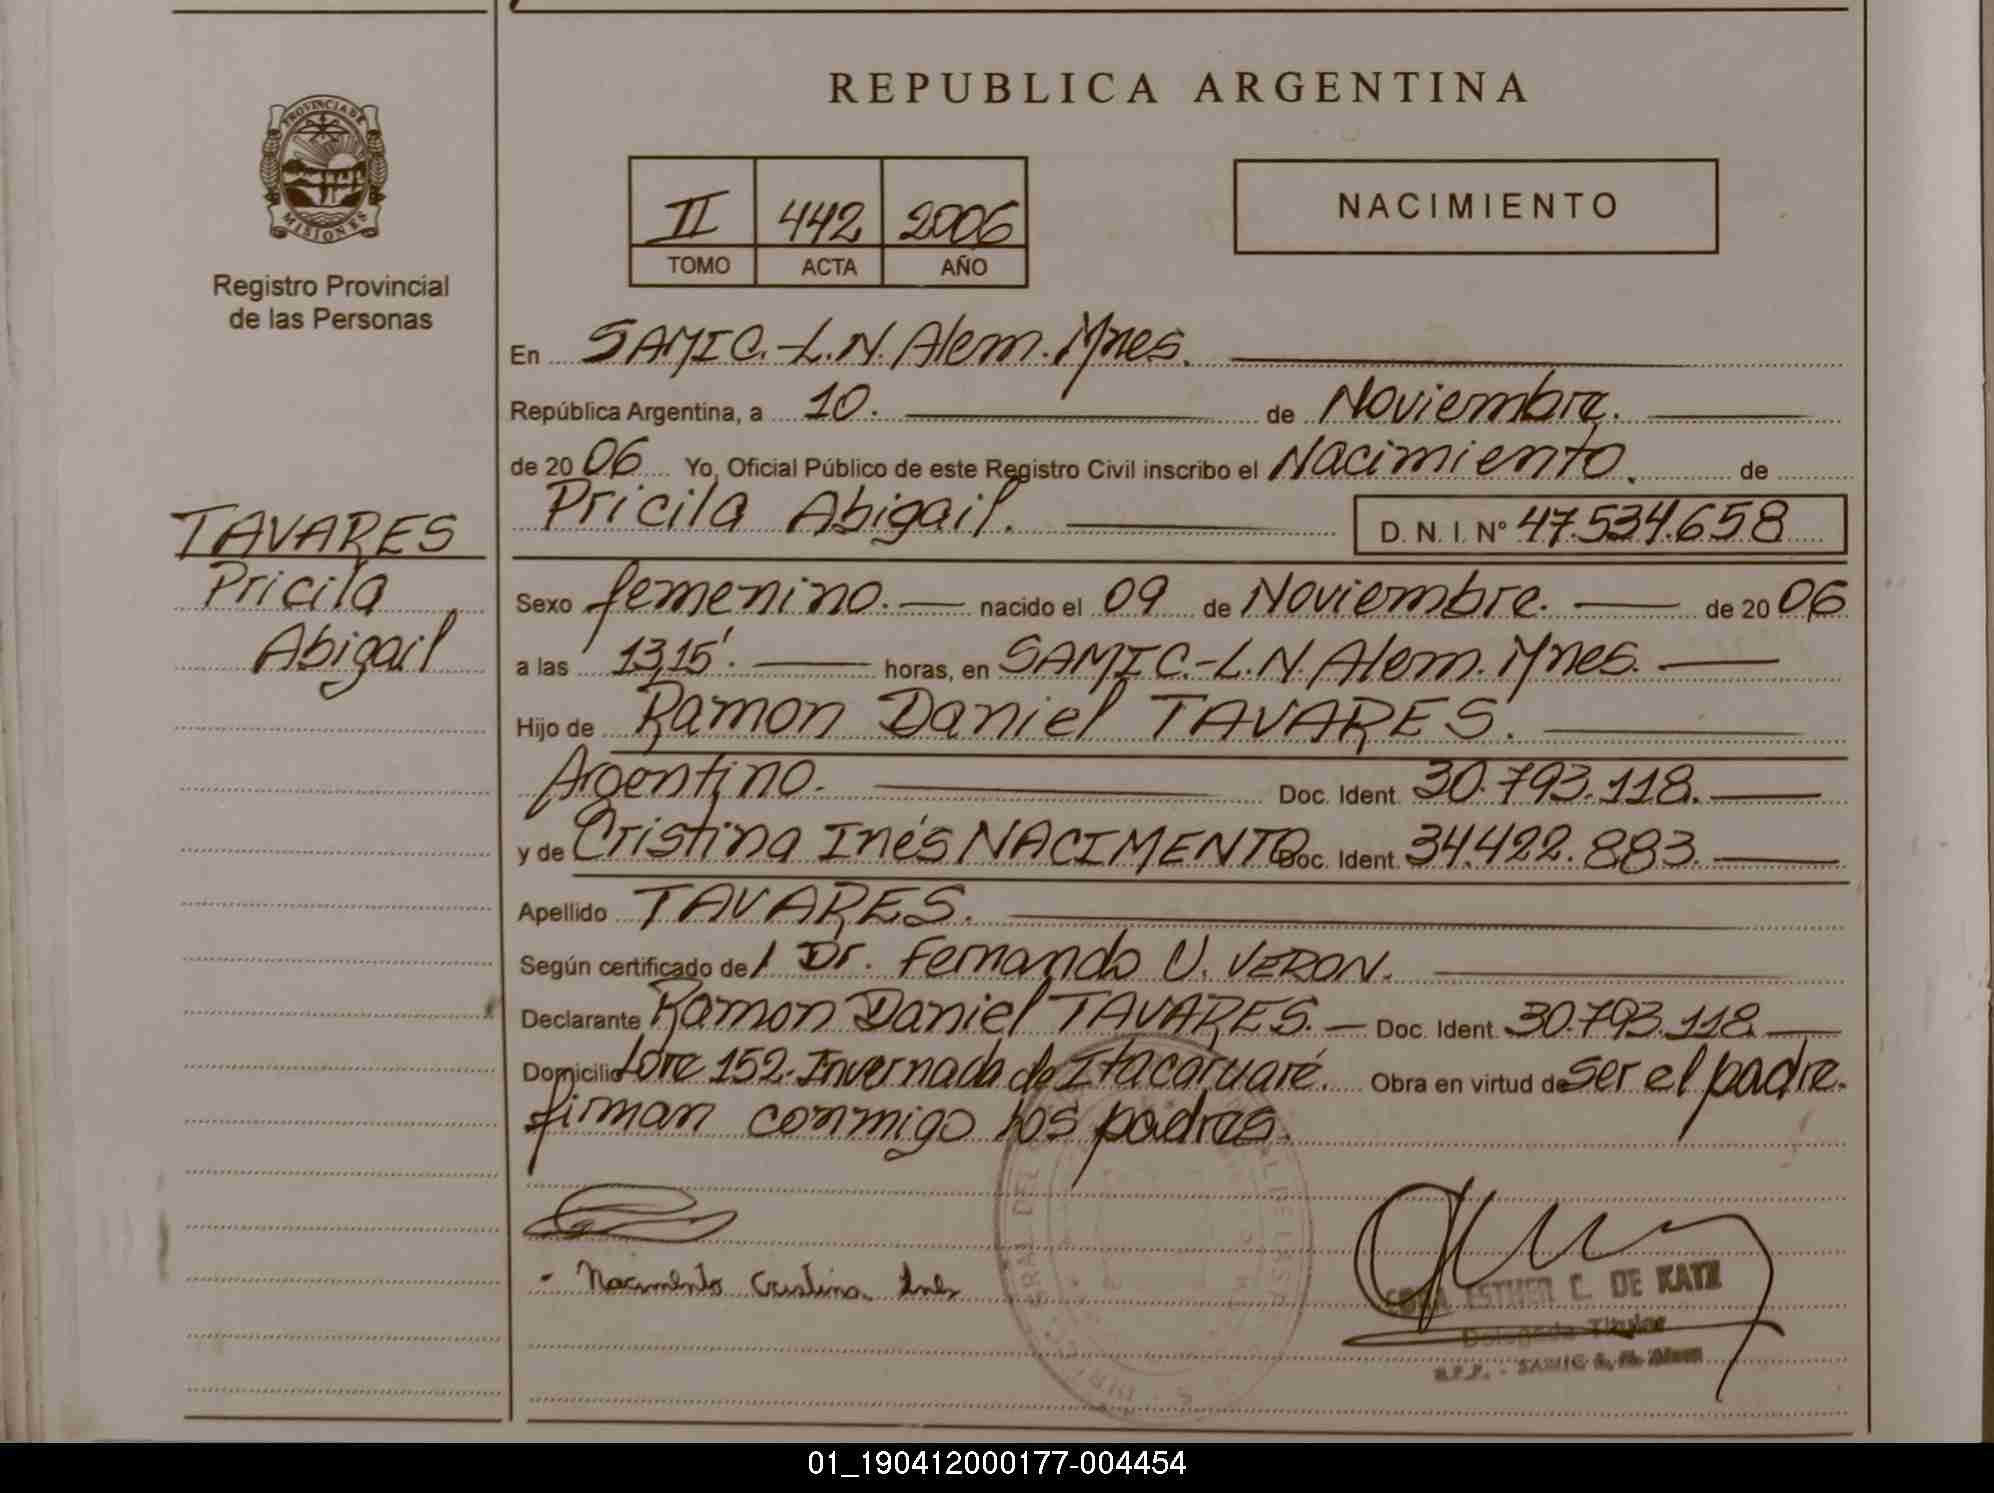 REPUBLICA ARGENTINA
PROVINCIA DE
MISIONES
Registro Provincial
de las Personas
II 442 2006
TOMO ACTA AÑO
NACIMIENTO
En SAMIC.-L.N. Alem. Mnes.
República Argentina, a 10. de Noviembre.
de 20 06 Yo, Oficial Público de este Registro Civil inscribo el Nacimiento. de
Pricila Abigail. D. N. I. Nº 47.534.658
TAVARES
Pricila
Abigail
Sexo femenino. nacido el 09 de Noviembre. de 20 06
a las 13,15'. horas, en SAMIC.-L.N. Alem. Mnes.
Hijo de Ramon Daniel TAVARES.
Argentino. Doc. Ident. 30.793.118.
y de Cristina Inés NACIMENTO Doc. Ident. 34.422.883.
Apellido TAVARES.
Según certificado de l Dr. Fernando U. VERON.
Declarante Ramon Daniel TAVARES. Doc. Ident. 30.793.118.
Domicilio Lote 152. Invernada de Itacaruaré. Obra en virtud de ser el padre.
firman conmigo los padres.
- Nacimento Cristina Ines
ESTHER C. DE KATZ
Delegada Titular
R.P.P. - SAMIC L. N. Alem
01_190412000177-004454